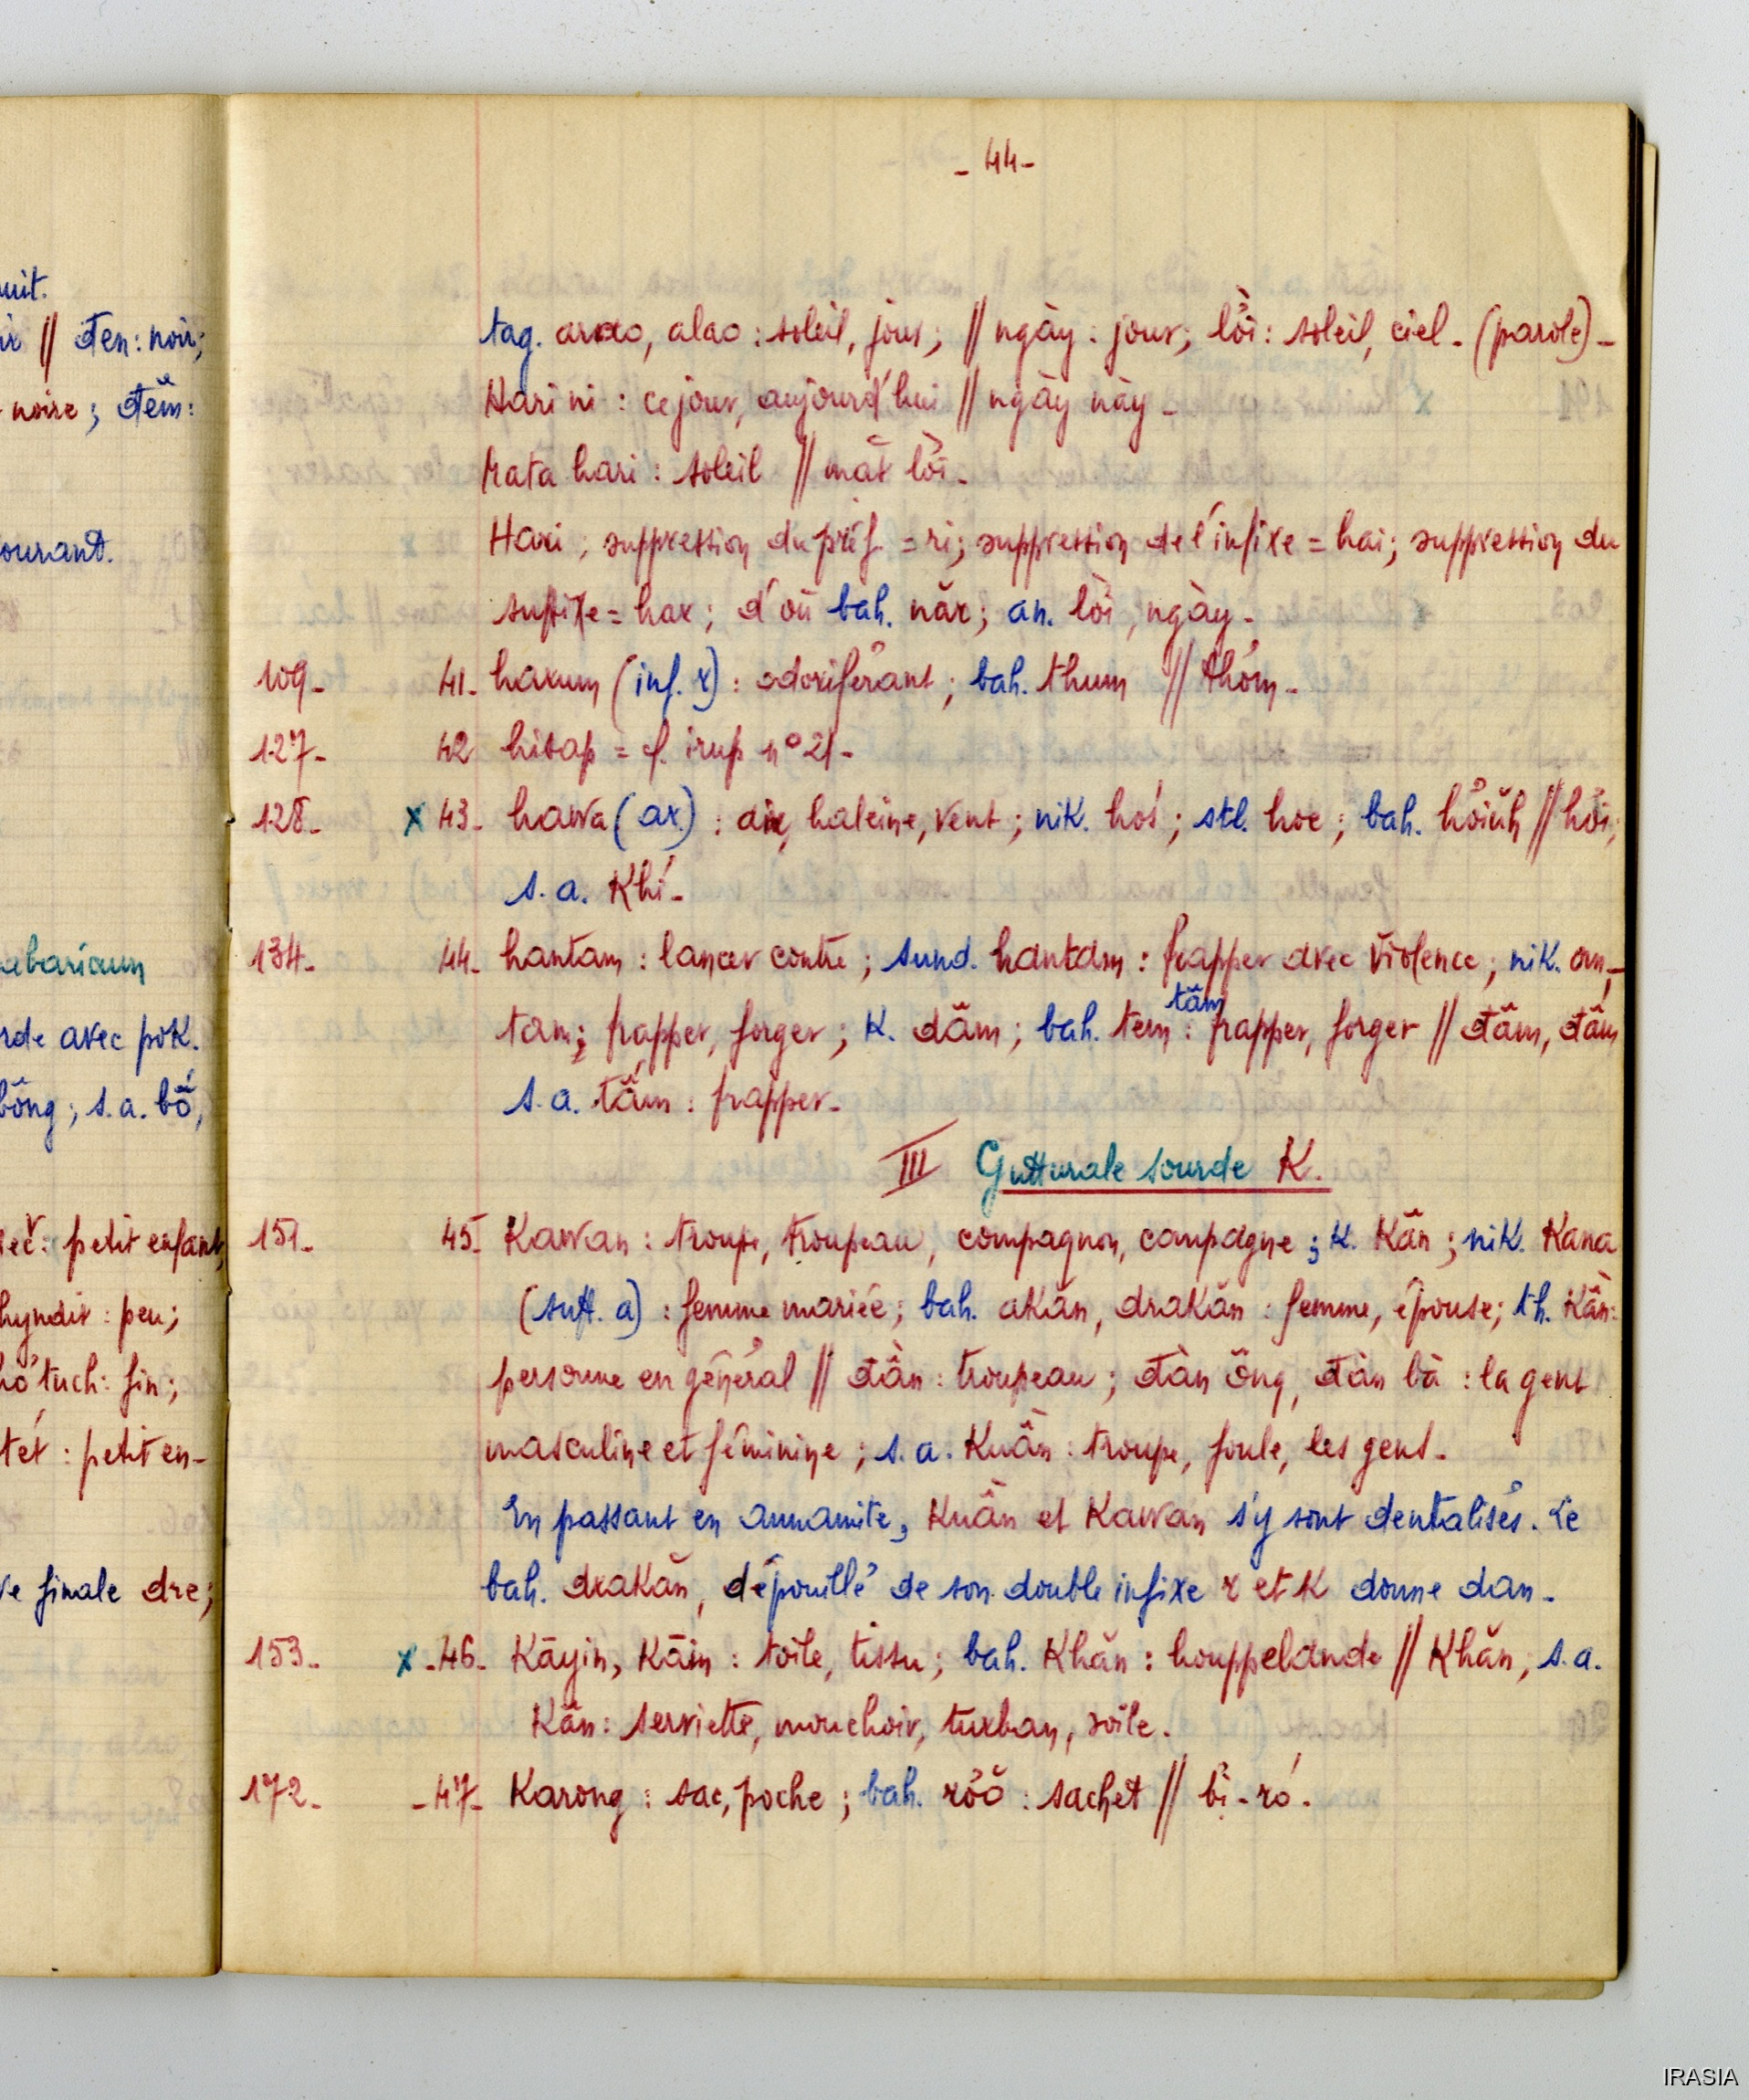 - 44 -
tag. arao, alao : soleil, jour; // ngày : jour; lời : soleil, ciel - (parole) -
Hari ni : ce jour, aujourd'hui // ngày này -
Mata hari : soleil // mặt lời -
Hari ; suppression du préf. = ri; suppression de l'infixe = hai; suppression du
suffixe = har ; d'où bah. năr ; an. lời, ngày -
109 - 41 - harum (inf. r) : odoriférant ; bah. thum // thơm -
127 - 42 hisap = cf. irup n° 21 -
128 - x 43 - hawa (ar.) : air, haleine, vent ; nik. hos ; stl. hoe ; bah. hơiŭh // hơi;
s. a. Khí -
134 - 44 - hantam : lancer contre ; sund. hantam : frapper avec violence ; nik. on-
tam ; frapper, forger ; K. dăm ; bah. tem tăm : frapper, forger // đâm, đấm
s. a. tẩm : frapper -
III Gutturale sourde K.
151 - 45 - Kawan : troupe, troupeau, compagnon, compagne ; K. Kân ; nik. Kana
(suff. a) : femme mariée ; bah. akăn, drakăn : femme, épouse ; th. Kần :
personne en général // đàn : troupeau ; đàn ông, đàn bà : la gent
masculine et féminine ; s. a. Kuần : troupe, foule, les gens -
En passant en annamite, Kuần et Kawan s'y sont dentalisés. Le
bah. drakăn, dépouillé de son double infixe r et K donne dan -
153 - x - 46 - Kāyin, Kāin : toile, tissu ; bah. Khăn : houppelande // Khăn, s. a.
Kân : serviette, mouchoir, turban, voile.
172 - - 47 - Karong : sac, poche ; bah. rŏŏ : sachet // bị - ró -
uit.
// đen : noir;
noire ; đêm :
ourant.
rde avec pok.
bông ; s. a. bố,
petit enfant,
hyndit : peu ;
hơtuch : fin ;
tét : petit en-
ve finale dre ;
IRASIA